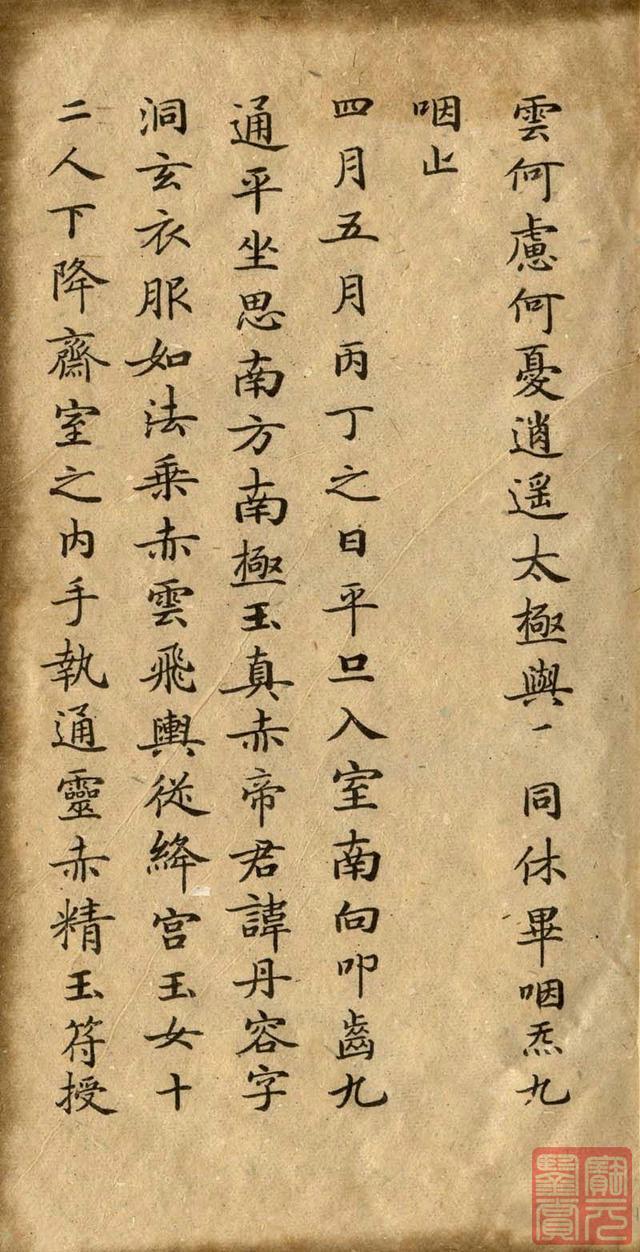 雲何慮何憂逍遥太極與一同休畢咽炁九
咽止
四月五月丙丁之日平旦入室南向叩齒九
通平坐思南方南極玉真赤帝君諱丹容字
洞玄衣服如法乗赤雲飛輿従絳宫玉女十
二人下降齋室之内手執通靈赤精玉符授
寶元
鑒賞